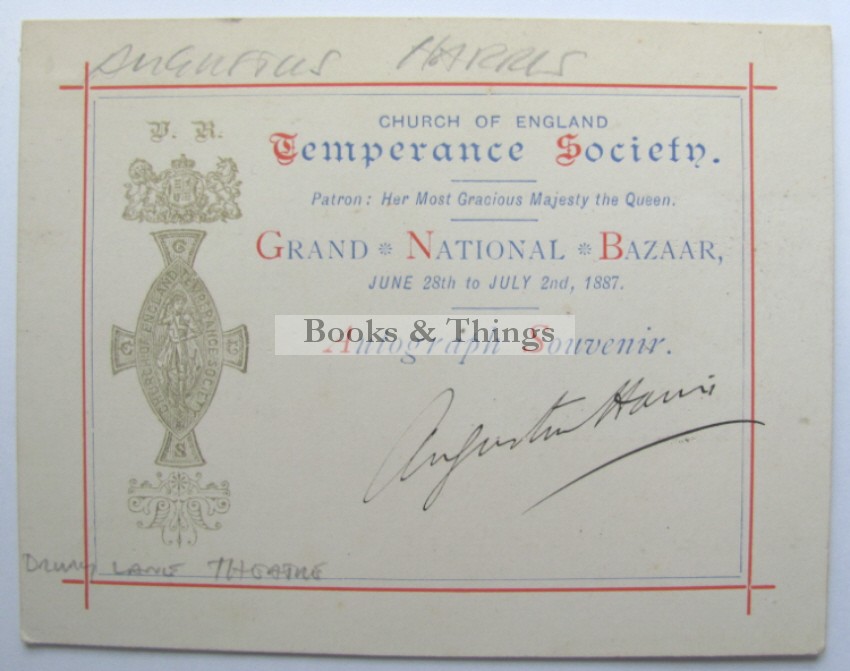 AUGUSTUS HARRIS
V. R.
CHURCH OF ENGLAND
Temperance Society.
Patron: Her Most Gracious Majesty the Queen.
GRAND * NATIONAL * BAZAAR,
JUNE 28th to JULY 2nd, 1887.
Books & Things
Autograph Souvenir.
Augustus Harris
C E T S
CHURCH OF ENGLAND TEMPERANCE SOCIETY
DRURY LANE THEATRE